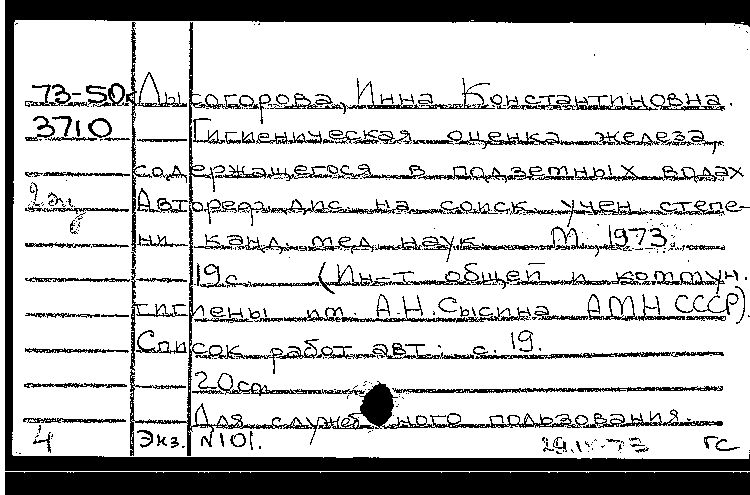 73-50к Лысогорова, Инна Константиновна.
3710 Гигиеническая оценка железа,
содержащегося в подземных водах
2 эк Автореф. дис. на соиск учен степе-
ни канд. мед наук. М., 1973.
19с. (Ин-т общей и коммун.
гигиены им. А.Н.Сысина АМН СССР).
Список работ авт.: с. 19.
20см
Для служебного пользования.
4 Экз. №101. 29.IV-73 ГС